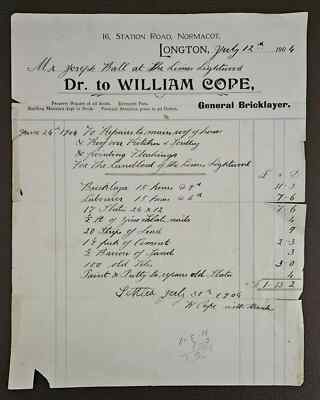 16, STATION ROAD, NORMACOT,
LONGTON, July 12th 1904
Mr Joseph Ball at the Limes Lightwood
Dr. to WILLIAM COPE,
Property Repairs of all kinds. Estimates Free.
Building Materials kept in Stock. Personal Attention given to all Orders.
General Bricklayer.
June 24th 1904 To Repairs to main roof of house
& Roof over Kitchen &
& pointing Flashings
For the Landlord of the Limes Lightwood
Bricklayer 15 hours @ 9d 11 3
Labourer 15 hours @ 6d 7 6
17 Slates 24 x 12 7 6
nails 4
20 Strips of Lead 9
1½ peck of Cement 2 3
½ Barrow of Sand 3
100 old Tiles 3 0
Paint & Putty to repair old Slates 4
£ 1 13 2
Settled July 30th 1904
W Cope with thanks